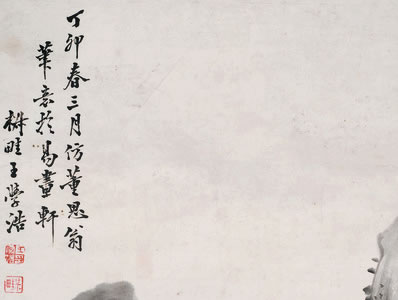 丁卯春三月仿董思翁
筆意於易畫軒
椒畦王學浩